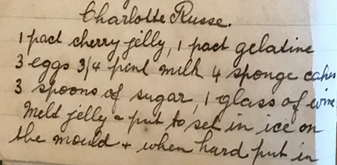 Charlotte Russe.
1 pact cherry jelly, 1 pact gelatine
3 eggs 3/4 pint milk 4 sponge cakes
3 spoons of sugar, 1 glass of wine
Melt jelly & put to set in ice on
the mould & when hard put in